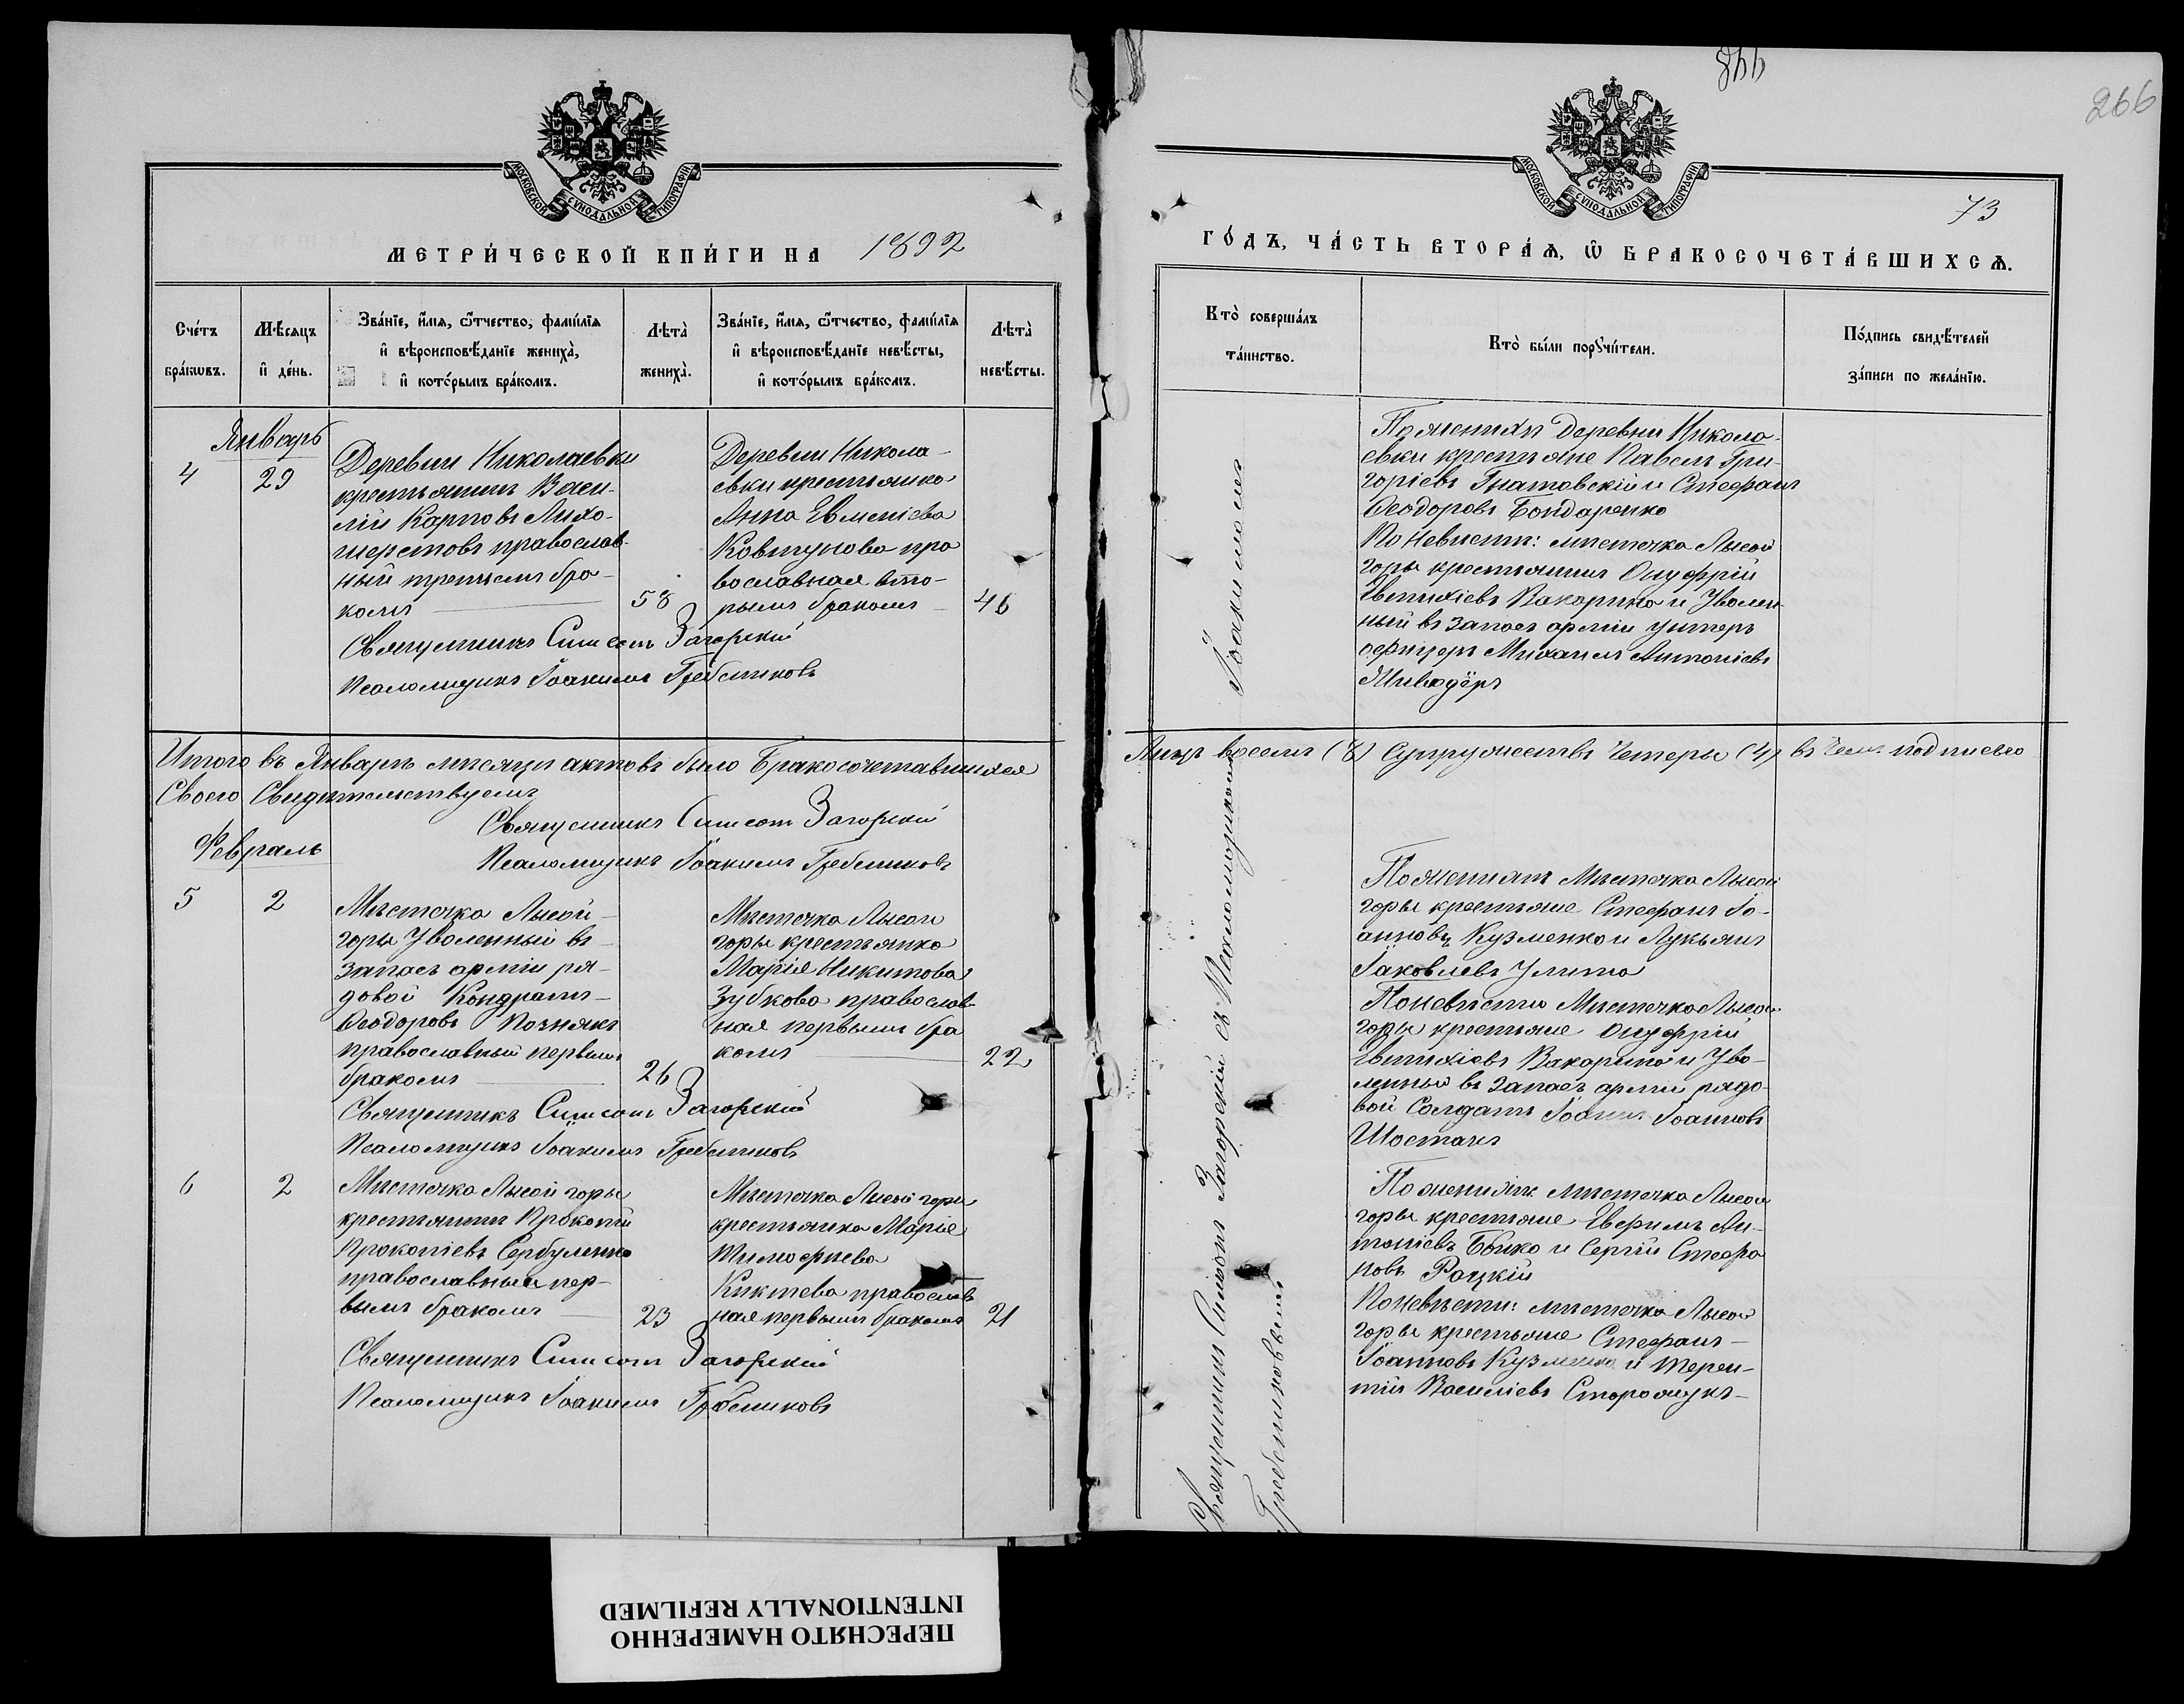 МОСКОВСКОЙ СѴНОДАЛЬНОЙ ТИПОГРАФІИ
МЕТРИ́ЧЕСКОЙ КНИ́ГИ НА 1892
Сче́тъ бра́кωвъ.
Мѣ́сяцъ и҆ де́нь.
Зва́нїе, и҆́мѧ, ѻ҆́тчество, фамилїѧ
и҆ вѣроисповѣ́данїе жениха̀,
и҆ кото́рымъ бра́комъ.
Лѣта̀ жениха̀.
Зва́нїе, и҆́мѧ, ѻ҆́тчество, фамилїѧ
и҆ вѣроисповѣ́данїе невѣ́сты,
и҆ кото́рымъ бра́комъ.
Лѣта̀ невѣ́сты.
Январь
4
29
Деревни Николаевки
крестьянинъ Васи-
лій Карповъ Лихо-
шерстовъ православ-
ный третьимъ бра-
комъ
58
Деревни Никола-
евки крестьянка
Анна Евменіева
Ковтунова пра
вославная вто-
рымъ бракомъ
46
Священникъ Симеонъ Загорскій
Псаломщикъ Іоакимъ Гребенниковъ
Итого въ Январѣ мѣсяцѣ актовъ было Бракосочетавшихся
Своего Свидѣтельствуемъ
Священникъ Симеонъ Загорскій
Псаломщикъ Іоакимъ Гребенниковъ
Февраль
5
2
Мѣстечка Лысой
горы Уволенный въ
запасъ арміи ря-
довой Кондратъ
Ѳеодоровъ Познякъ
православный первымъ
бракомъ
26
Мѣстечка Лысой
горы крестьянка
Марія Никитова
Зубкова православ-
ная первымъ бра
комъ
22
Священникъ Симеонъ Загорскій
Псаломщикъ Іоакимъ Гребенниковъ
6
2
Мѣстечка Лысой горы
крестьянинъ Прокопій
Прокопіевъ Сербуленко
православный пер-
вымъ бракомъ
23
Мѣстечка Лысой горы
крестьянка Марія
Тимофѣева
Киктева православ
ная первымъ бракомъ
21
Священникъ Симеонъ Загорскій
Псаломщикъ Іоакимъ Гребенниковъ
866
266
МОСКОВСКОЙ СѴНОДАЛЬНОЙ ТИПОГРАФІИ
73
ГО́ДЪ, ЧА́СТЬ ВТОРА́Ѧ, Ѽ БРАКОСОЧЕТА́ВШИХСѦ.
Кто̀ соверша́лъ
та́инство.
Кто̀ бы́ли порꙋчи́тели.
По́дпись свидѣ́телей
за́писи по жела́нїю.
Священникъ Симеонъ Загорскій съ Псаломщикомъ Іоакимомъ
Гребенниковымъ
По женихѣ деревни Никола-
евки крестьяне Павелъ Гри-
горіевъ Гнатовскій и Стефанъ
Ѳеодоровъ Бондаренко
По Невѣстѣ: мѣстечка Лысой
горы крестьянинъ Онуфрій
Евтихіевъ Вакарина и Уволен-
ный въ запасъ арміи унтеръ
офицеръ Михаилъ Антоніевъ
Живодёръ
Лицъ восемь (8) Супружествъ Четыре (4) въ чемъ подписью
По женихѣ Мѣстечка Лысой
горы крестьяне Стефанъ Іо-
анновъ Кузменко и Лукьянъ
Іаковлевъ Улита
По невѣстѣ Мѣстечка Лысой
горы крестьяне Онуфрій
Евтихіевъ Вакарина и Уво-
ленный въ запасъ арміи рядо-
вой Солдатъ Іоаннъ Іоанновъ
Шостакъ
По женихѣ мѣстечка Лысой
горы крестьяне Евфимъ Ан-
тоніевъ Бойко и Сергій Стефа
новъ Рацкій
По Невѣстѣ: мѣстечка Лысой
горы крестьяне Стефанъ
Іоанновъ Кузменко и Терен-
тій Василіевъ Сторожукъ
ПЕРЕСНЯТО НАМЕРЕННО
INTENTIONALLY REFILMED